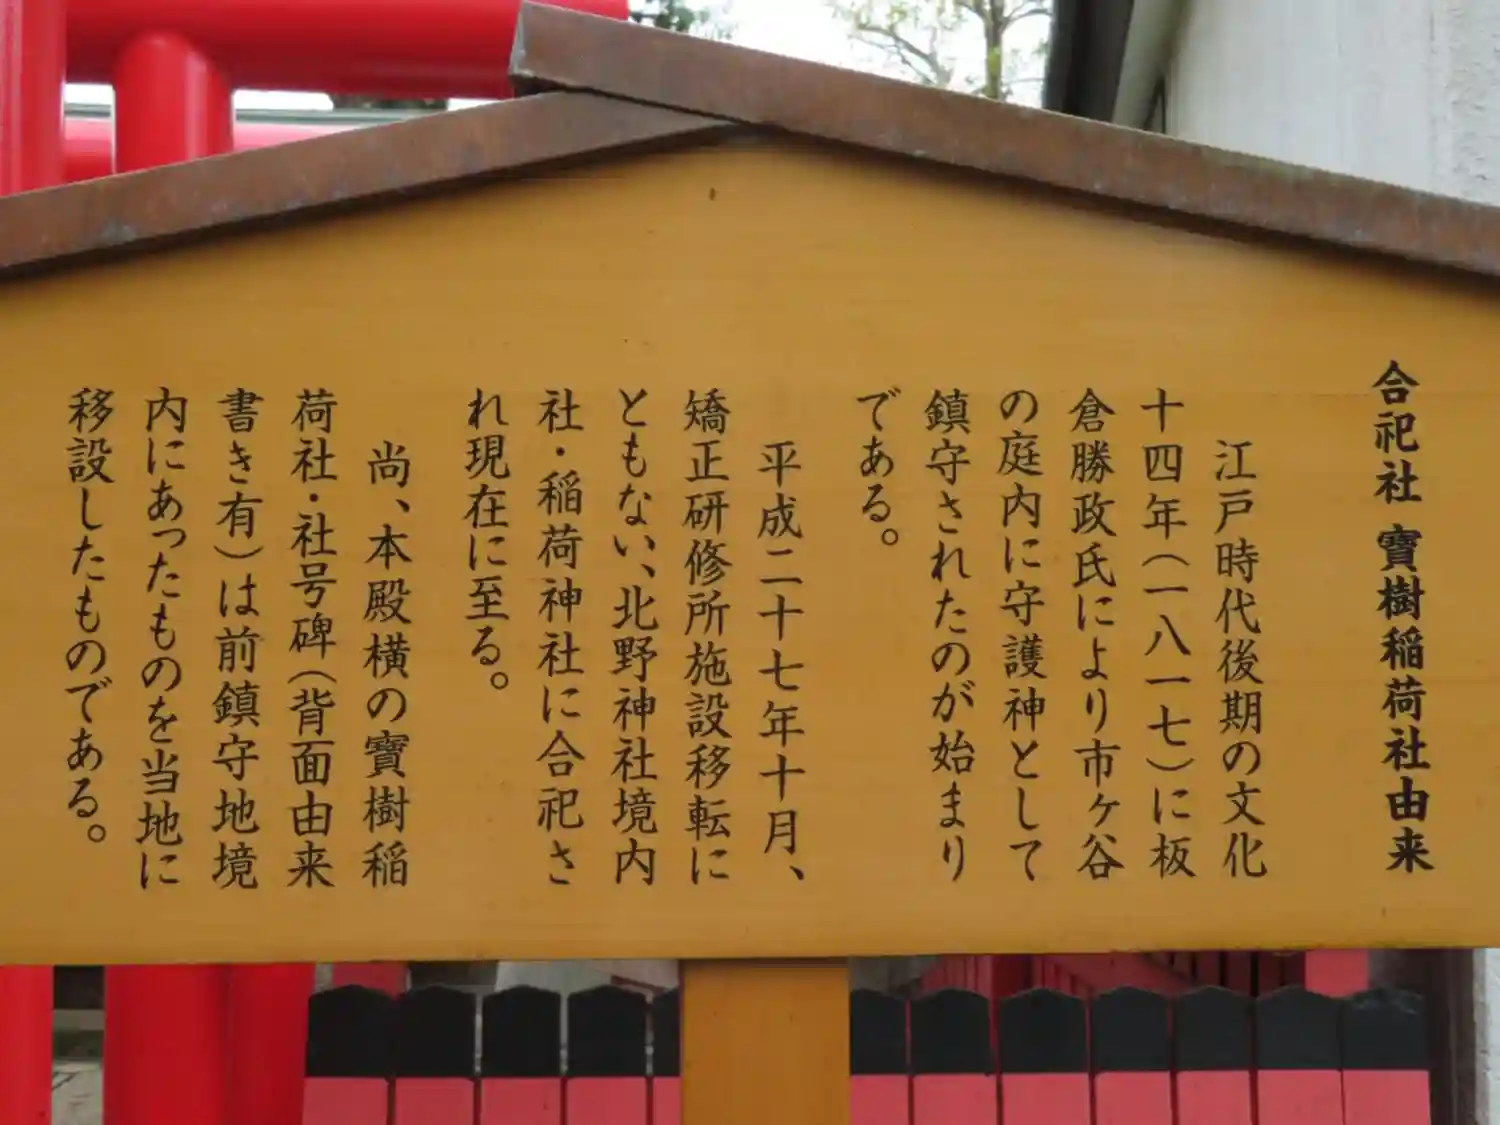 合祀社 寶樹稲荷社由来
江戸時代後期の文化
十四年（一八一七）に板
倉勝政氏により市ヶ谷
の庭内に守護神として
鎮守されたのが始まり
である。
平成二十七年十月、
矯正研修所施設移転に
ともない、北野神社境内
社・稲荷神社に合祀さ
れ現在に至る。
尚、本殿横の寶樹稲
荷社・社号碑（背面由来
書き有）は前鎮守地境
内にあったものを当地に
移設したものである。